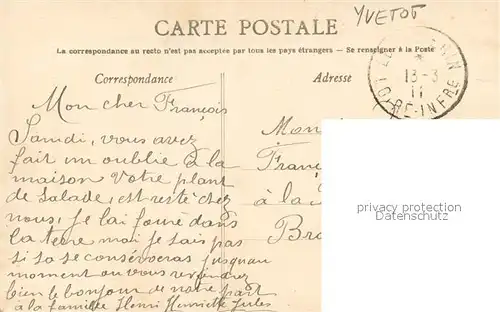 YVETOT
CARTE POSTALE
La correspondance au recto n'est pas acceptée par tous les pays étrangers. — Se renseigner à la Poste
Correspondance
Adresse
13-3
11
RE-INFRE
Mon cher François
Samdi, vous avez
fait un oublie à la
maison votre plant
de salade, est resté chez
nous, je lai fouré dans
la terre mai je sais pas
si sa se conserveras jusquau
moment ou vous
bien le bonjour de notre part
a la famille Henri Henriette Jules
Mon
Fran
à la
Br
privacy protection
Datenschutz